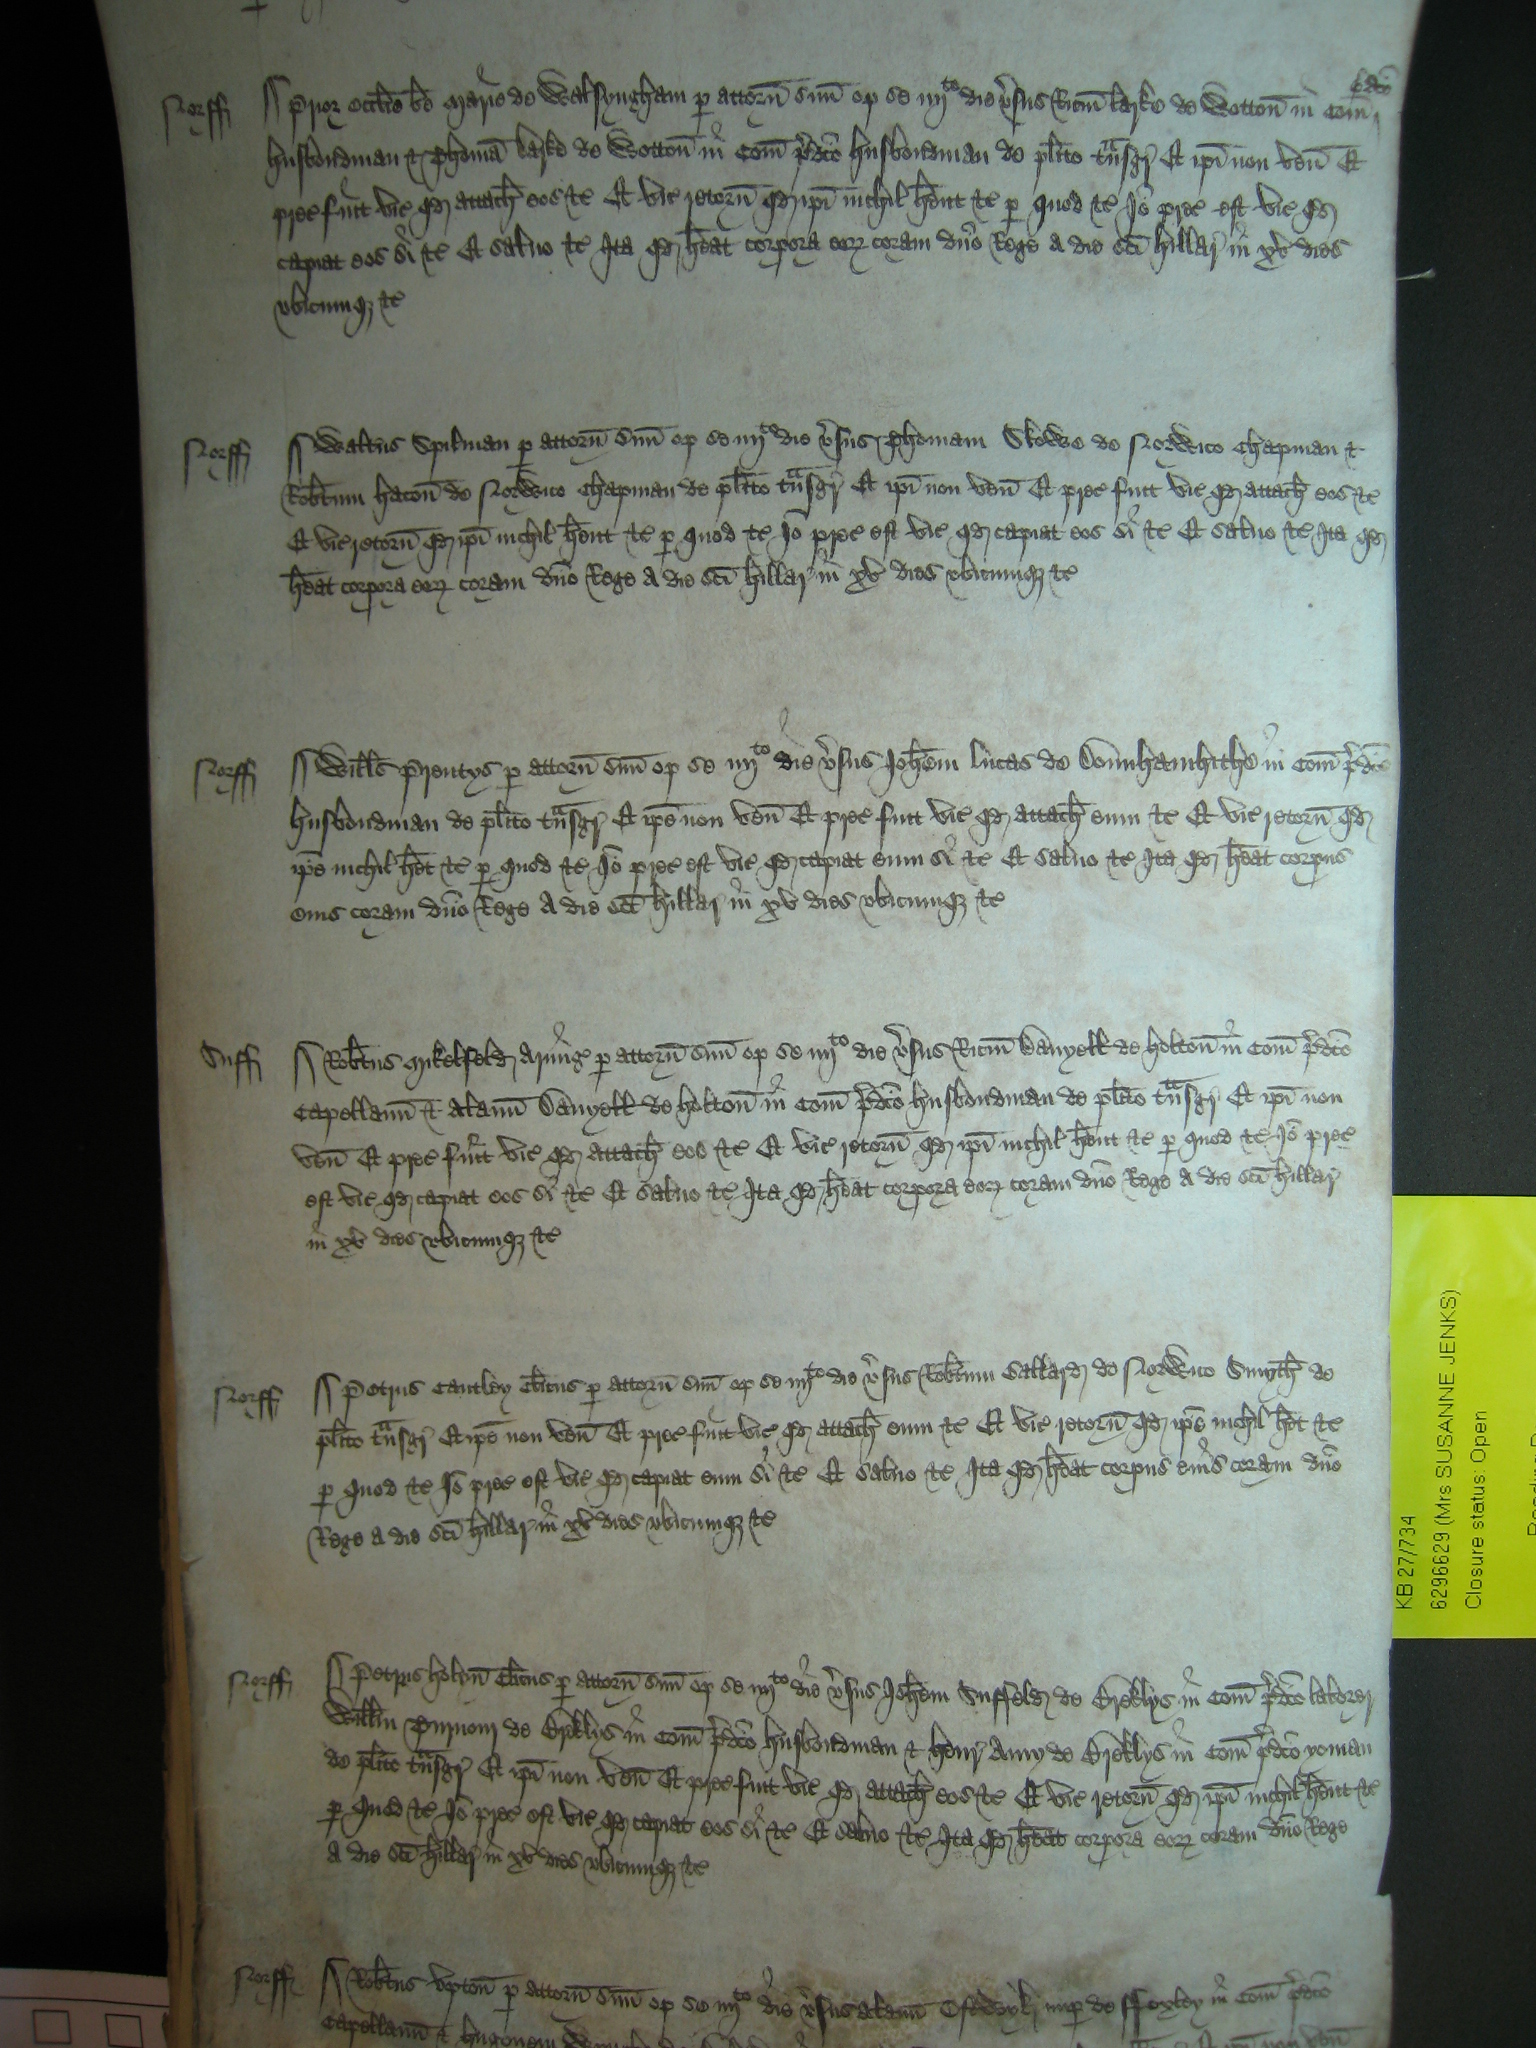 p̄dco
Norff ¶ Prior ecclie be Marie de Walsyngham p attorn suu op se iiijto die vsus Ricm larke de Wotton in Com
husbondman & Thomā larke de Wotton in Com p̄dco husbondman de plito tnsgr Et ipi non ven Et
prec fuit vic qd attach eos &c Et vic retorn qd ipi nichil hent &c p quod &c Io prec est vic qd
capiat eos si &c Et saluo &c Ita qd heat corpora eor coram dno Rege a die sci hillar in xv dies
vbicumq &c
Norff ¶ Waltus Spilman p attorn suu op se iiijto die vsus Thomam Skowe de Norwico Chapman &
Robtum hacon de Norwico Chapman de plito tnsgr Et ipi non ven Et prec fuit vic qd attach eos &c
Et vic retorn qd ipi nichil hent &c p quod &c Io prec est vic qd capiat eos si &c Et saluo &c Ita qd
heat corpora eor coram dno Rege A die sci hillar in xv dies vbicumq &c
Norff ¶ Wills Prentys p attorn suu op se iiijto die vsus Johem lucas de Dounhamhithe in Com p̄dco
husbondman de plito tnsgr Et ipe non ven Et prec fuit vic qd attach eum &c Et vic retorn qd
ipe nichil het &c p quod &c Io prec est vic qd capiat eum si &c Et saluo &c Ita qd heat corpus
eius coram dno Rege A die sci hillar in xv dies vbicumq &c
Suff ¶ Robtus Mikelfeld Armig p attorn suu op se iiijto die vsus Ricm Danyell de holton in Com p̄dco
Capellanu & Alanu Danyell de holton in Com p̄dco husbondman de plito tnsgr Et ipi non
ven Et prec fuit vic qd attach eos &c Et vic retorn qd ipi nichil hent &c p quod &c Io prec
est vic qd capiat eos si &c Et saluo &c Ita qd heat corpora eor coram dno Rege a die sci hillar
in xv dies vbicumq &c
Norff ¶ Petrus Cantley Clicus p attorn suu op se iiijto die vsus Robtum Ballard de Norwico Smyth de
plito tnsgr Et ipe non ven Et prec fuit vic qd attach eum &c Et vic retorn qd ipe nichil het &c
p quod &c Io prec est vic qd capiat eum si &c Et saluo &c Ita qd heat corpus eius coram dno
Rege a die sci hillar in xv dies vbicumq &c
Norff ¶ Petrus holyn Clicus p attorn suu op se iiijto die vsus Johem Suffeld de Breklys in Com p̄dco laborer
Willm de Breklys in Com p̄dco husbondman & Henr Amy de Breklys in Com p̄dco yoman
de plito tnsgr Et ipi non ven Et prec fuit vic qd attach eos &c Et vic retorn qd ipi nichil hent &c
p quod &c Io prec est vic qd capiat eos si &c Et saluo &c Ita qd heat corpora eor coram dno Rege
a die sci hillar in xv dies vbicumq &c
Norff ¶ Robtus Vpton p attorn suu op se iiijto die vsus Alanu nup de Foxley in Com p̄dco
Capellanu & hugonem
KB 27/734
6296629 (Mrs SUSANNE JENKS)
Closure status: Open